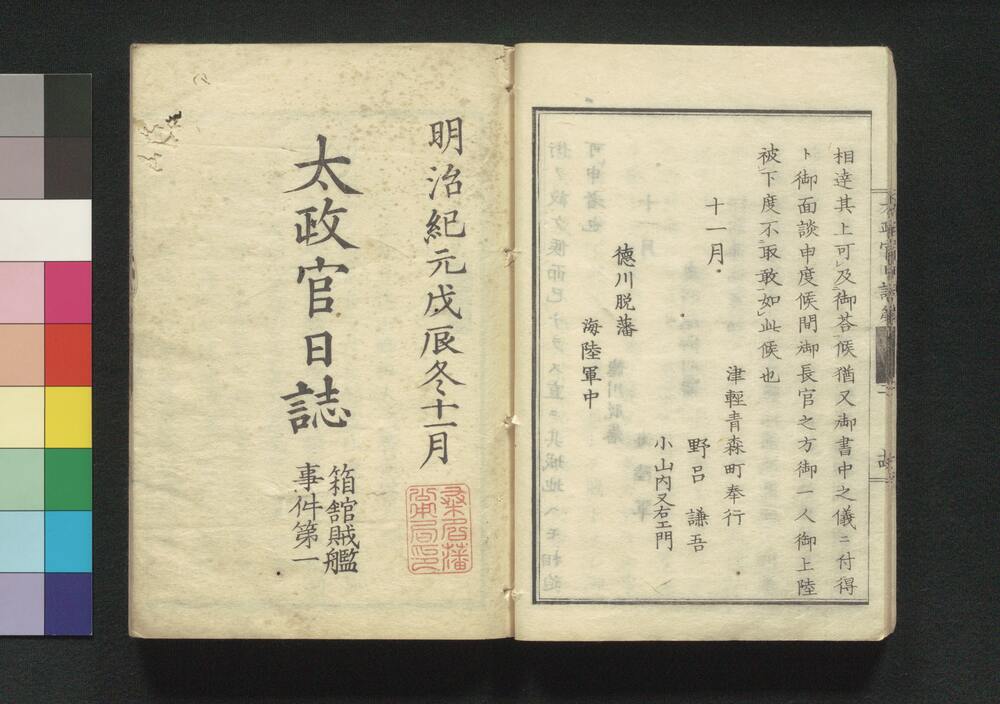 相達其上可及御荅候猶又御書中之儀ニ付得
ト御面談申度候間御長官之方御一人御上陸
被下度不取敢如此候也
十一月
津輕青森町奉行
野呂謙吾
小山内又右エ門
徳川脱藩
海陸軍中
明治紀元戊辰冬十一月
太政官日誌
箱舘賊艦
事件第一
桑名藩